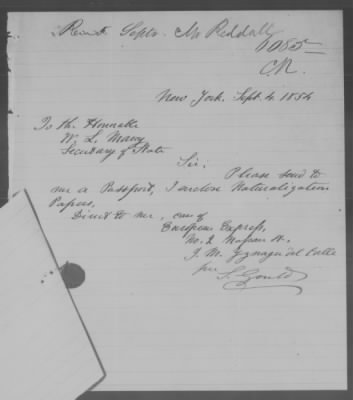 Septr. McReddall
C.R.
New York. Sept. 4. 1854
To the Honorable
W. L. Marcy
Secretary of State
Sir;
Please send to
me a Passport, I enclose Naturalization
Papers.
Direct to me, care of
European Express,
No. 2 Nassau St.
J. M. del Valle
per S. Gould